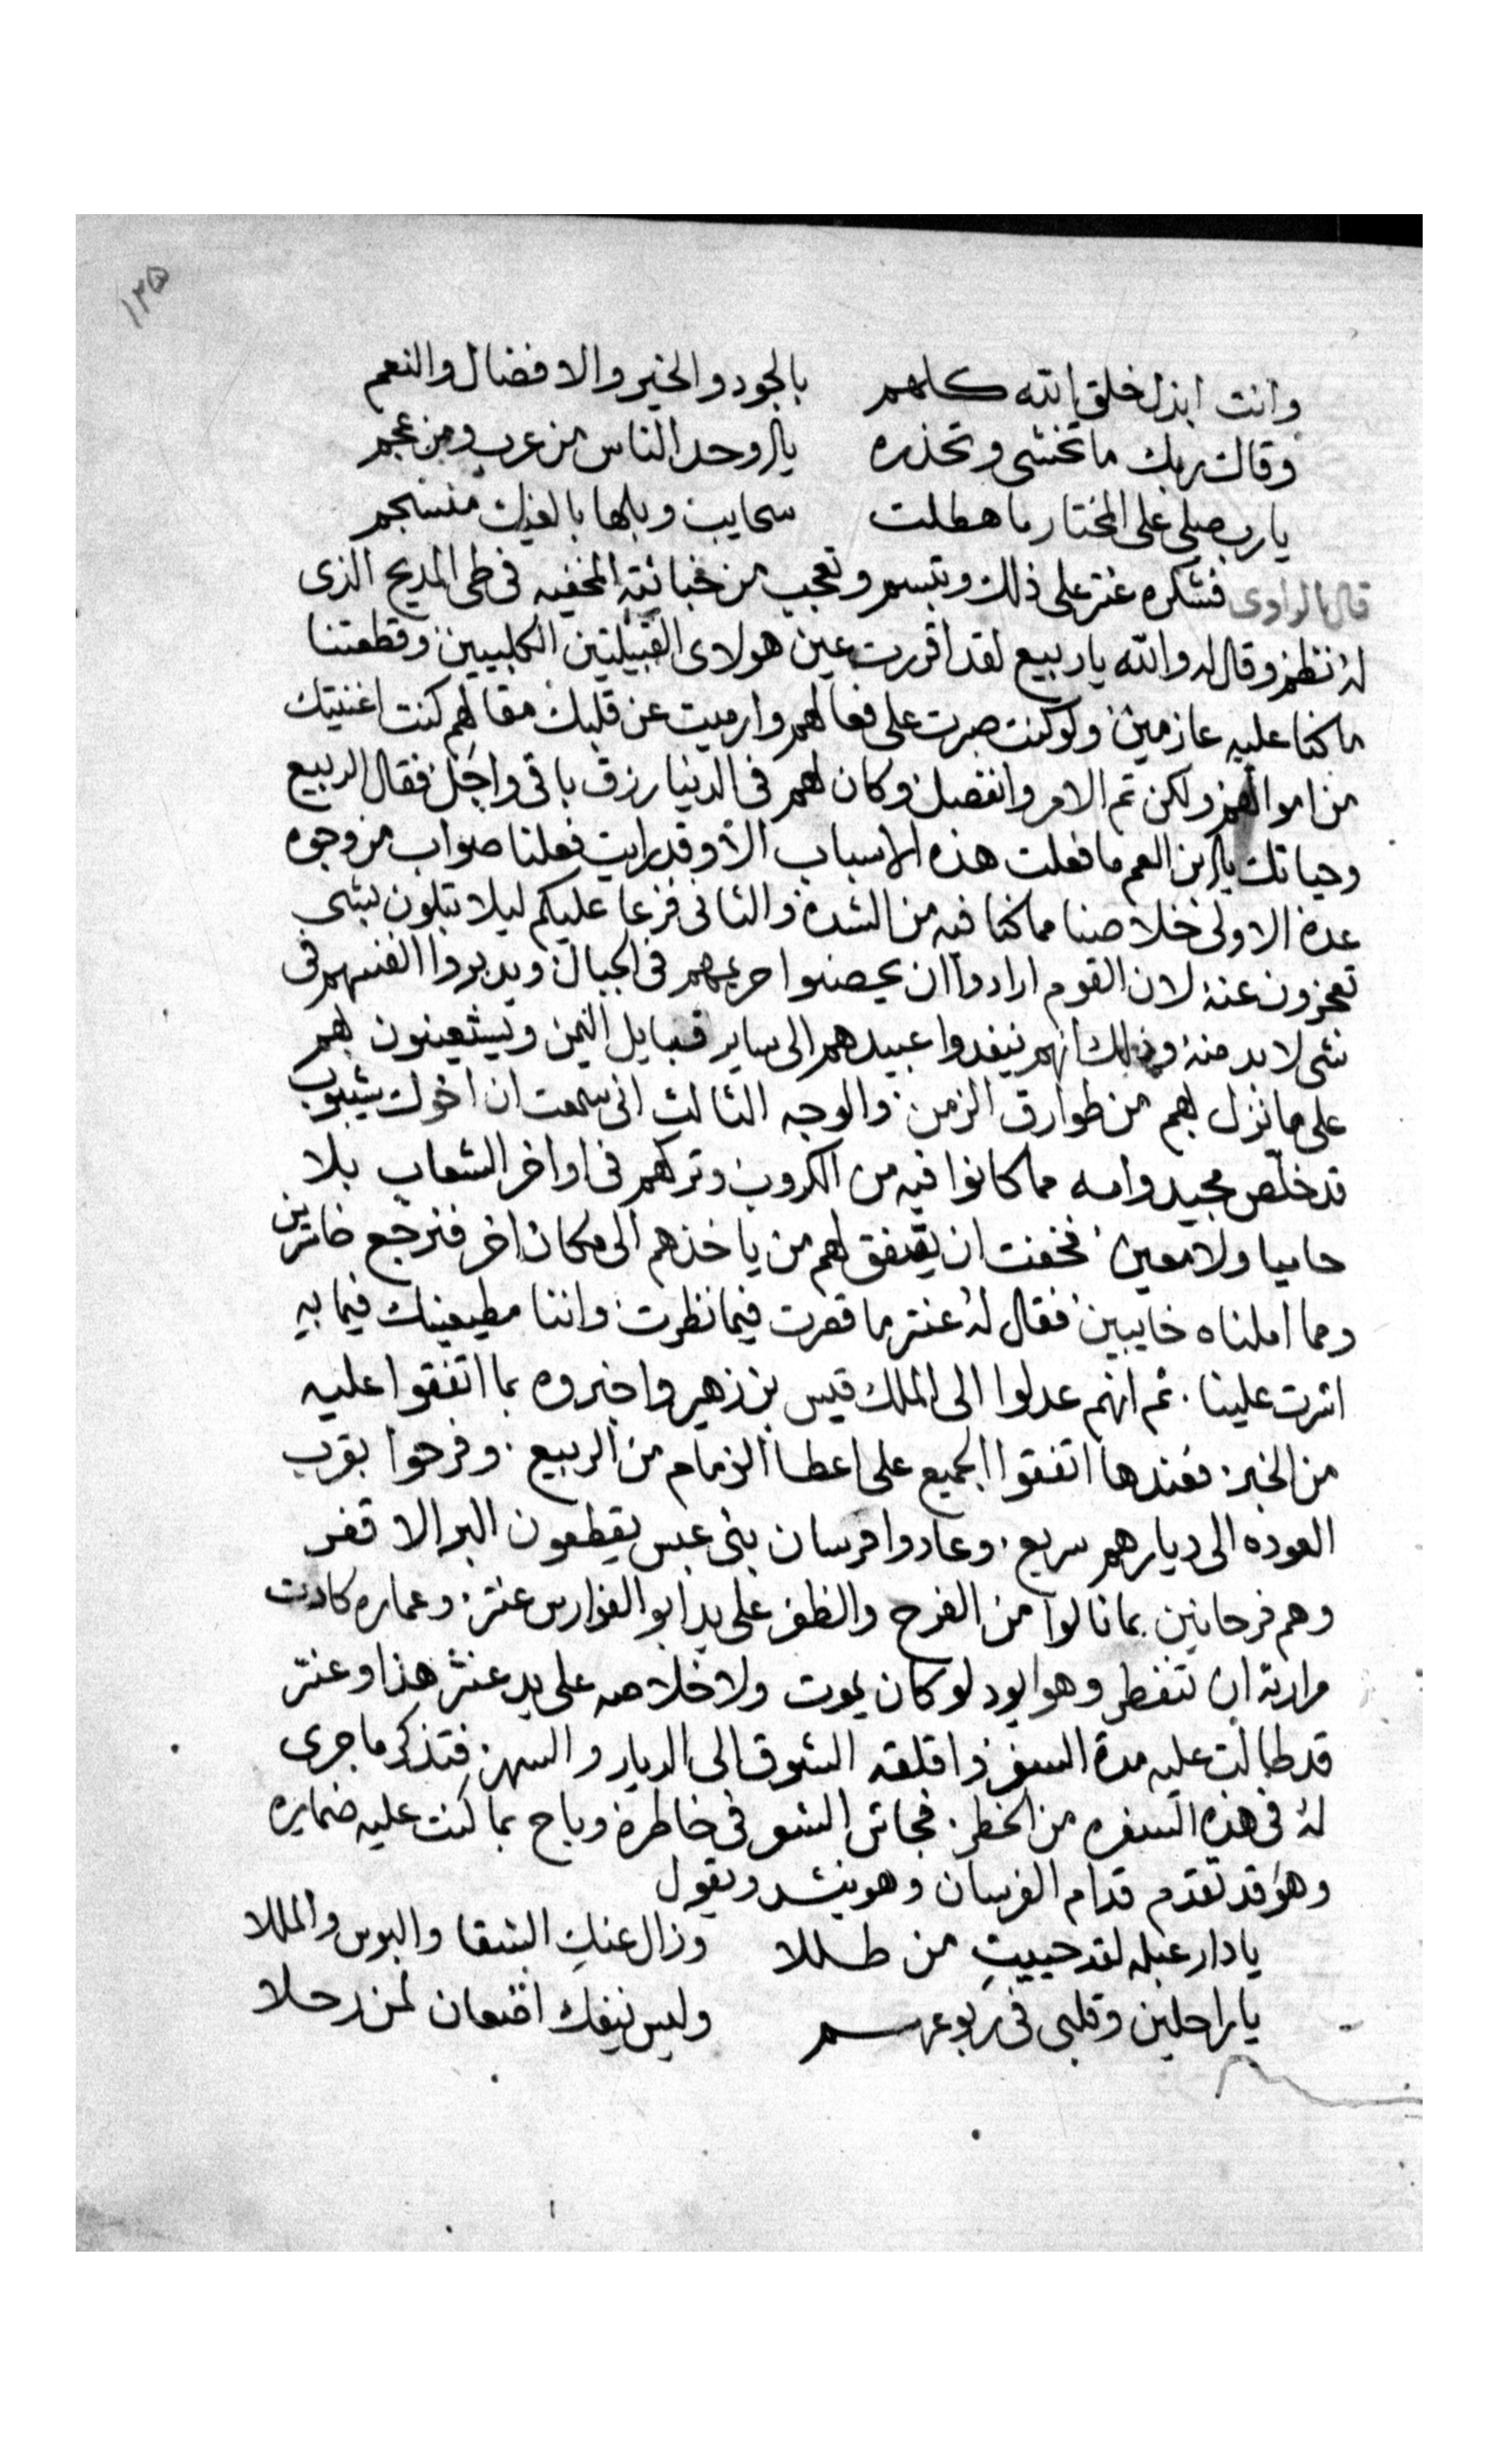 ١٣٥
وانت ابذل خلق الله كلهم بالجود والخير والافضال والنعم
وقاك ربك ما تخشى وتحذره يا اوحد الناس من عرب ومن عجم
يا رب صلي على المختار ما هطلت سحايب وبلها بالغيث منسجم
قال الراوى فشكره عنتر على ذلك وتبسم وتعجب من خباثته المخفيه فى طى المديح الذى
له نظم وقال له والله يا ربيع لقد اقررت عين هولاى القبيلتين الكلبيين وقطعتنا
ما كنا عليه عازمين ولو كنت صبرت على فعالهم وارميت عن قلبك مقالهم كنت اغنيتك
من اموالهم ولكن تم الامر وانفصل وكان لهم فى الدنيا رزق باقى واجل فقال الربيع
وحياتك يا ابن العم ما فعلت هذه الاسباب الا وقد رايت فعلنا صواب من وجوه
عدة الاولى خلاصنا مما كنا فيه من الشدة والثانى فزعا عليكم ليلا تبلون بشى
تعجزون عنه لان القوم ارادوا ان يحصنوا حريمهم فى الجبال ويدبروا انفسهم فى
شى لا بد منه وذلك انهم ينفدوا عبيدهم الى ساير قبايل اليمن ويستعينون بهم
على ما نزل بهم من طوارق الزمن والوجه الثالث انى سمعت ان اخوك شيبوب
قد خلص مجيد وامه مما كانوا فيه من الكروب وتركهم فى اواخر الشعاب بلا
حاميا ولا معين فخفت ان يتفق لهم من ياخذهم الى مكان اخر فنرجع خاسرين
ومما املناه خايبين فقال له عنتر ما قصرت فيما نظرت واننا مطيعينك فيما به
اشرت علينا . ثم انهم عدلوا الى الملك قيس بن زهير واخبروه بما اتفقوا عليه
من الخبر فعندها اتفقوا الجميع على اعطا الزمام من الربيع . وفرحوا بقرب
العوده الى ديارهم سريع . وعادوا فرسان بنى عبس يقطعون البر الاقفر
وهم فرحانين بما نالوا من الفرح والظفر على يد ابو الفوارس عنتر . وعماره كادت
مرارته ان تنفطر وهو يود لو كان يموت ولا خلاصه على يد عنتر هذا وعنتر
قد طالت عليه مدة السفر واقلقه الشوق الى الديار والسهر فتذكر ما جرى
له فى هذه السفره من الخطر . فجاش الشعر فى خاطره وباح بما كنت عليه ضمايره
وهو قد تقدم قدام الفرسان وهو ينشد ويقول
يا دار عبله لقد حييتِ من طللا وزال عنكِ الشقا والبوس والمللا
يا راحلين وقلبى فى ربوعهم وليس ينفك اضعان لمن رحلا